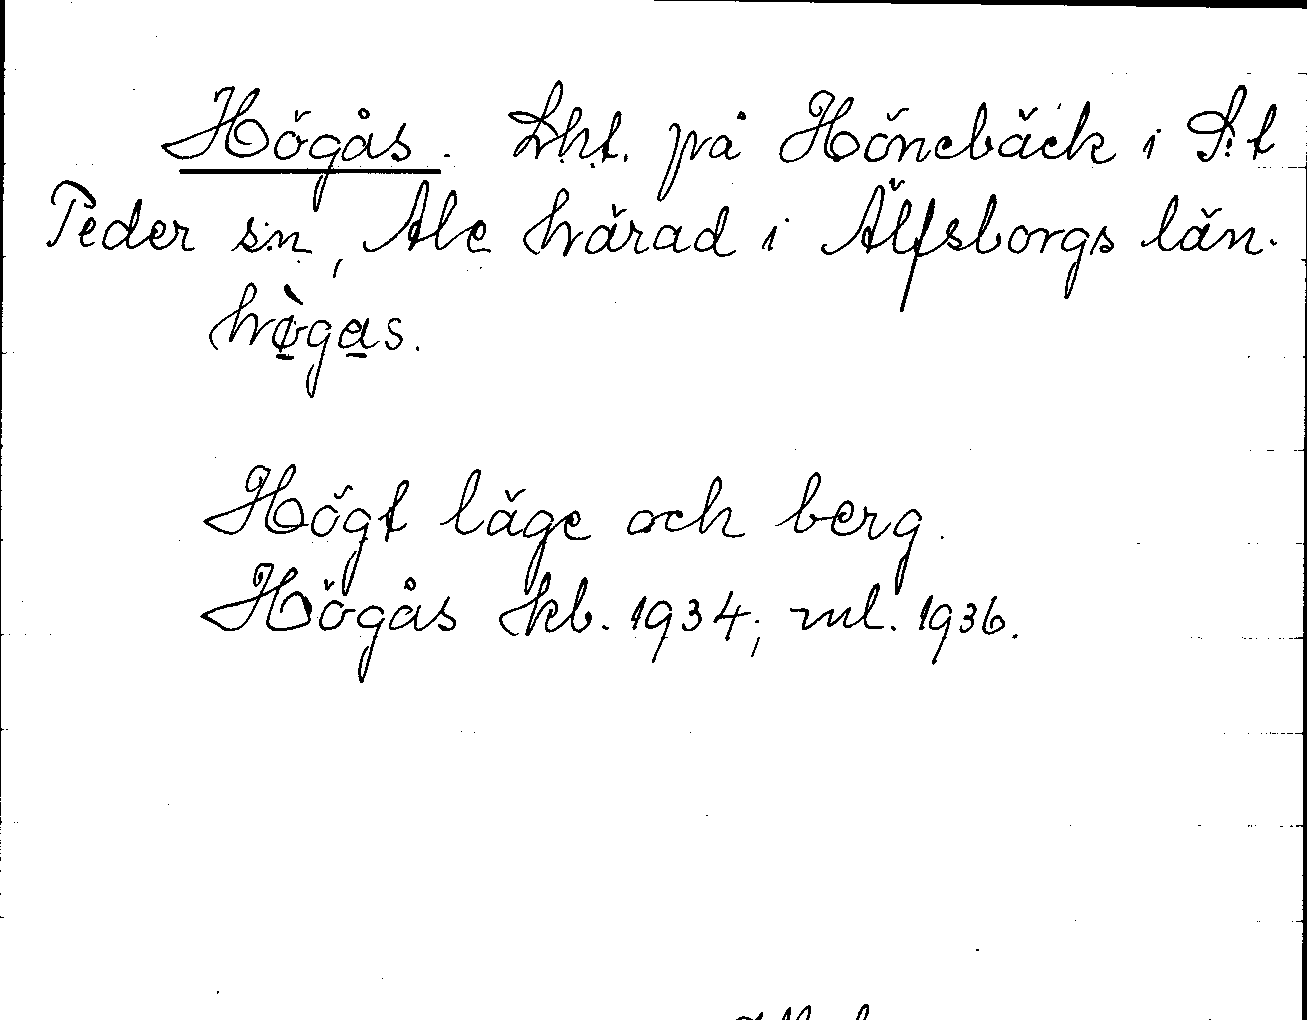 Högås. Lht. på Hönebäck i S:t
Peder sn, Ale härad i Älfsborgs län.
hø̀gas.
Högt läge och berg.
Högås kb. 1934; ml. 1936.